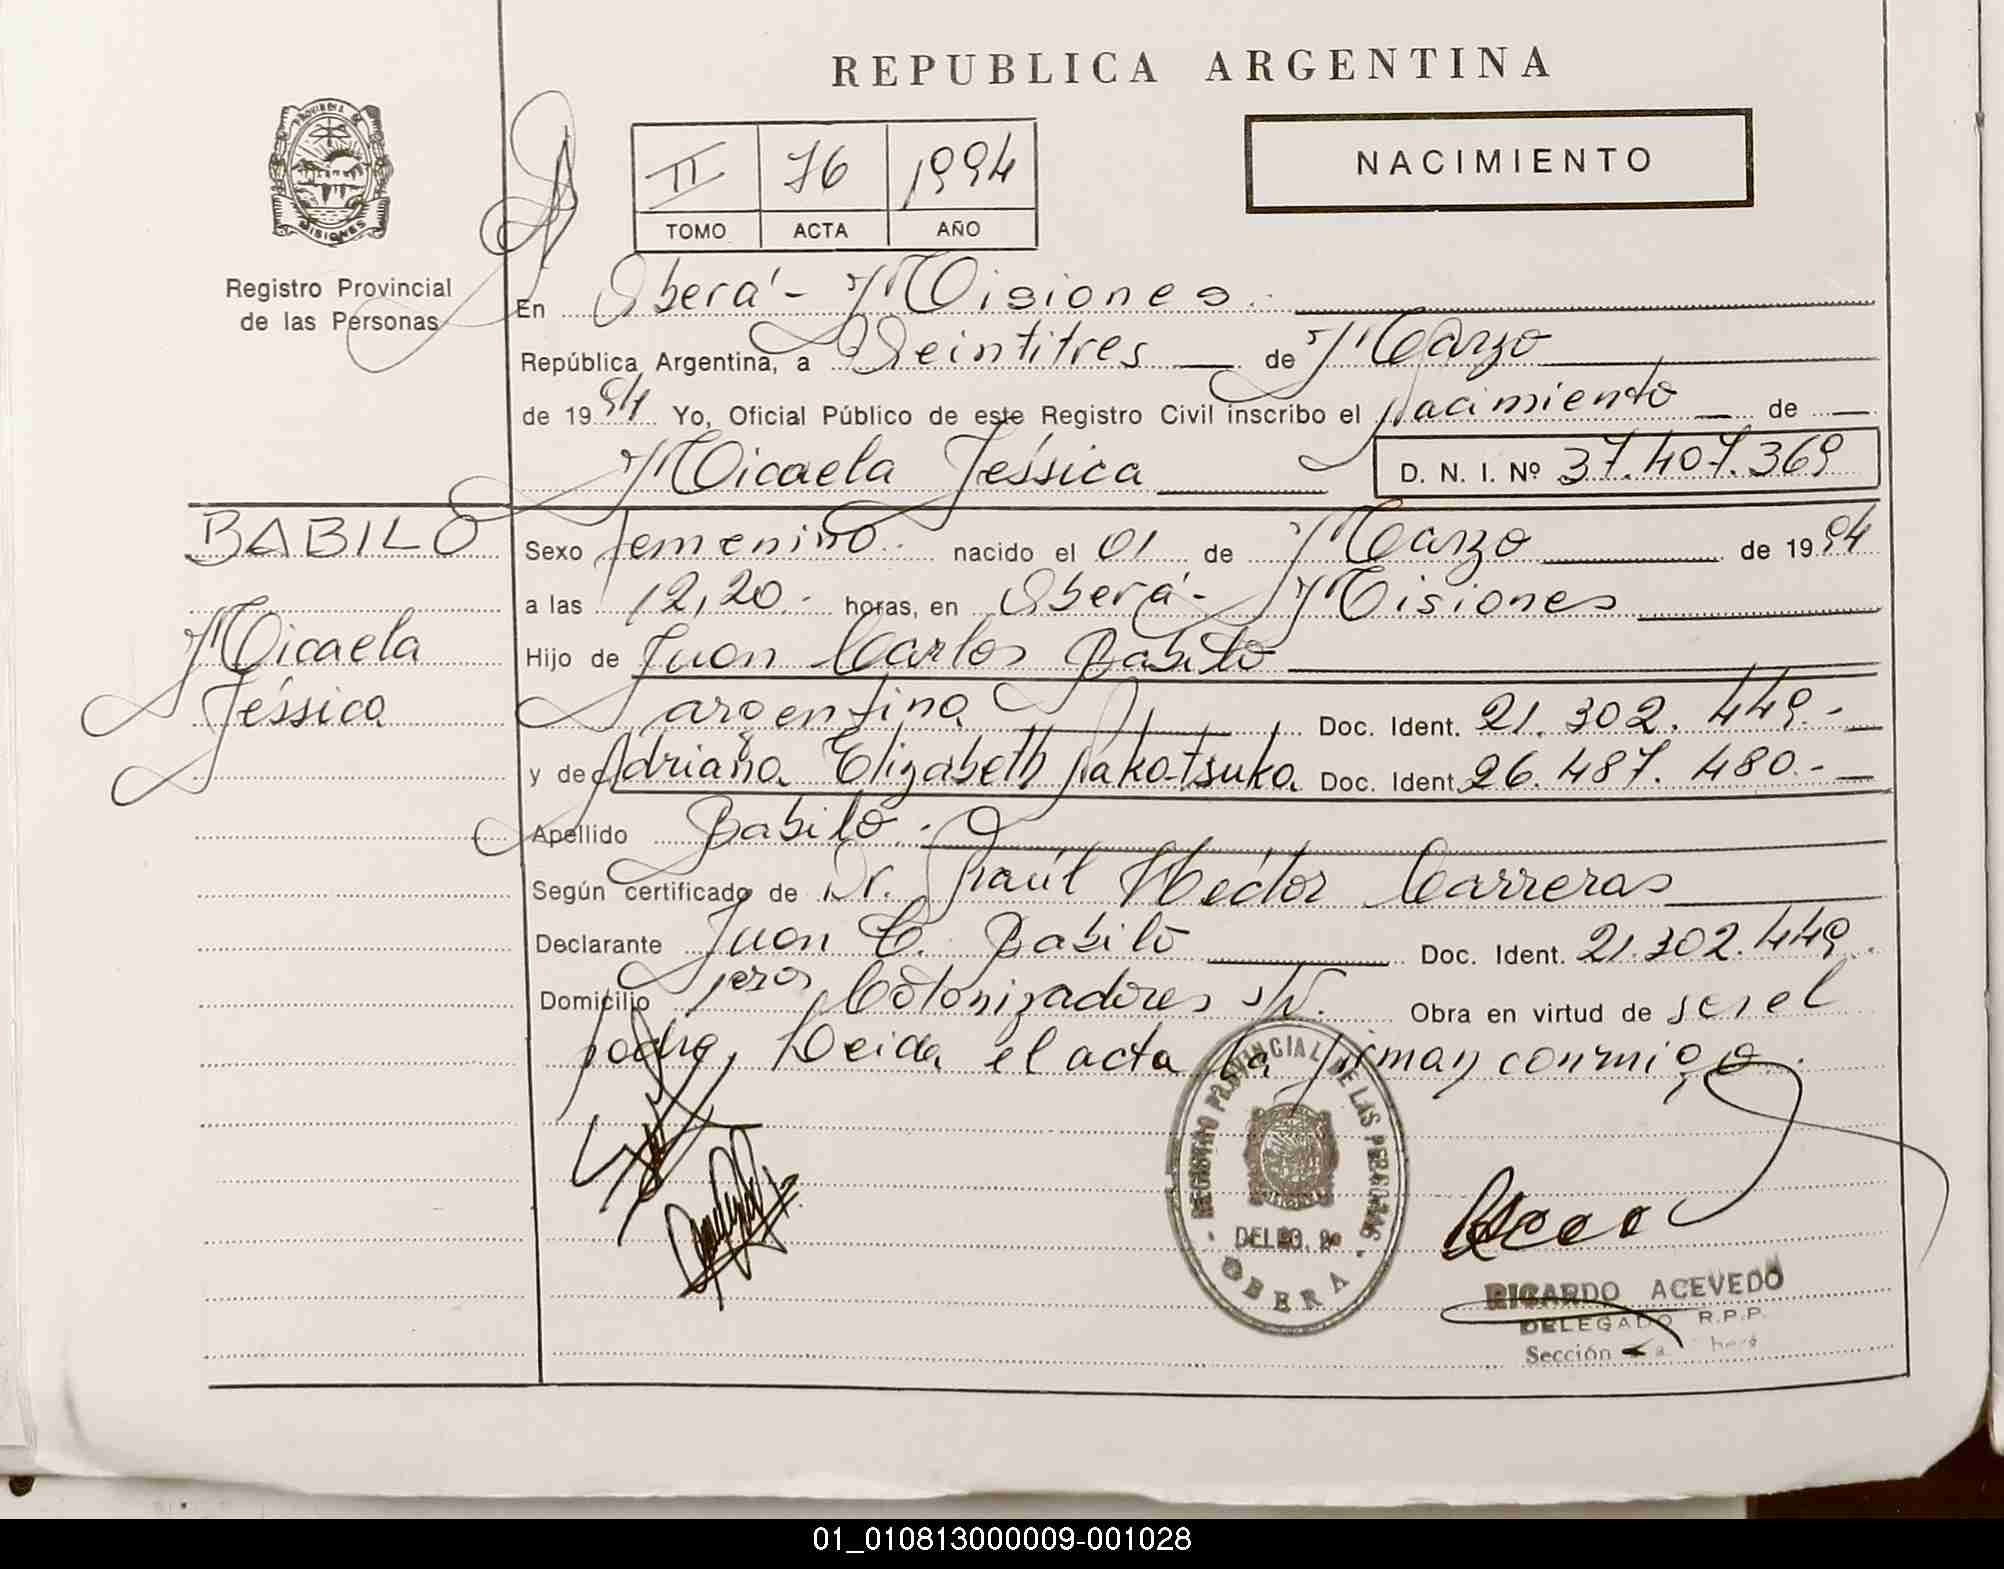 REPUBLICA ARGENTINA
PROVINCIA DE
MISIONES
Registro Provincial
de las Personas
II 76 1994
TOMO ACTA AÑO
NACIMIENTO
En Oberá - Misiones.
República Argentina, a Veintitres de Marzo
de 1994 Yo, Oficial Público de este Registro Civil inscribo el nacimiento de
Micaela Jéssica
D. N. I. Nº 37.407.369
BABILO
Micaela
Jéssica
Sexo femenino. nacido el 01 de Marzo de 1994
a las 12,20. horas, en Oberá - Misiones
Hijo de Juan Carlos Babilo
argentino Doc. Ident. 21.302.449.-
y de Adriana Elizabeth Doc. Ident. 26.487.480.-
Apellido Babilo.
Según certificado de Dr. Raúl Héctor Carreras
Declarante Juan C. Babilo Doc. Ident. 21.302.449.
Domicilio Colonizadores S/N. Obra en virtud de ser el
padre, Leida el acta la firman conmigo.
REGISTRO PROVINCIAL DE LAS PERSONAS
OBERA
RICARDO ACEVEDO
DELEGADO R.P.P.
Sección
01_010813000009-001028